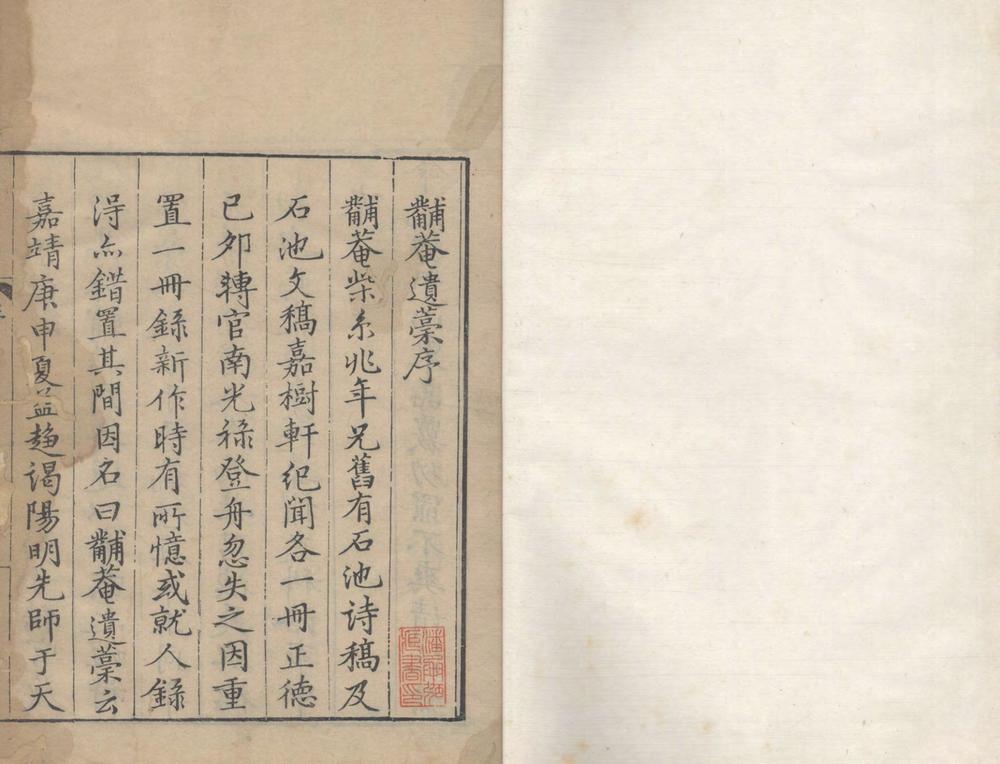 黼菴遺藁序
黼菴柴糸兆年兄舊有石池詩稿及
石池文稿嘉樹軒紀聞各一冊正德
已夘轉官南光祿登舟忽失之因重
置一冊錄新作時有所憶或就人錄
淂亦錯置其間因名曰黼菴遺藁云
嘉靖庚申夏益趋谒陽明先師于天